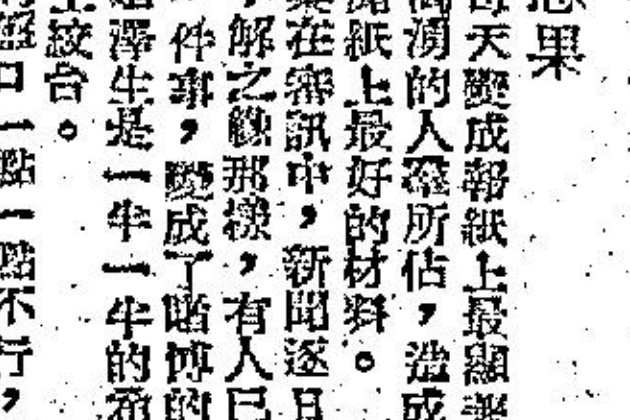 果
天變成報紙上最顯
湧的人羣所佔，造成
紙上最好的材料。
在審訊中，新聞逐日
解之緣那樣，有人已
件事，變成了賭博的
澤生是一半一半的
絞台。
口一點一點不行，